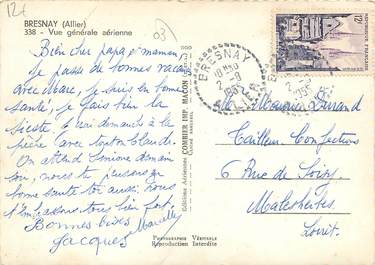 12f
BRESNAY (Allier)
338 - Vue générale aérienne
03
Bien cher papa et maman,
Je passe de bonnes vacances
avec Marc, je suis en bonne
santé, je fais bien la
sieste, je vais demain à la
pêche avec tonton Claude.
On attend Simone demain
soir, nous te pensons en
bonne santé toi aussi, nous
t'embrassons tous bien fort,
Bonnes bises
Jacques Marcelle
Editions Aériennes COMBIER IMP. MACON
PHOTOGRAPHIE VÉRITABLE
Reproduction Interdite
BRESNAY
18H30
2-8
ALLIER
12F
Mr Maurice Durand
Tailleur Confections
6 Rue de
Malesherbes
Loiret